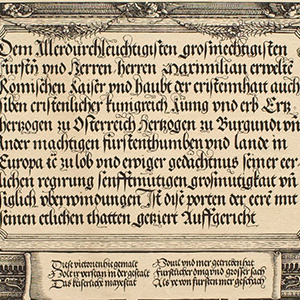 Dem Allerdurchleuchtigisten grosmechtigisten
fürstn vnd Herren herren Maximilian erwelte
Römischen Kaiser vnd haubt der cristenhait auch
siben cristenlicher kunigreich kunig vnd erb Ertz
hertzogen zu Osterreich Hertzogen zu Burgundi vn
Ander mächtigen fürstenthumben vnd lande in
Europa etc zu lob vnd ewiger gedächtnus seiner eer
lichen regirung senfftmutigen grosmutigkait vn
siglich vberwindungen Ist dise porten der eere mit
seinen etlichen thatten geziert Auffgericht
Diese victorien hie gemalt
Das keiserlich mayestat
Fürstlicher ding vnd grosser sach
Als ye von fürsten mer geschach